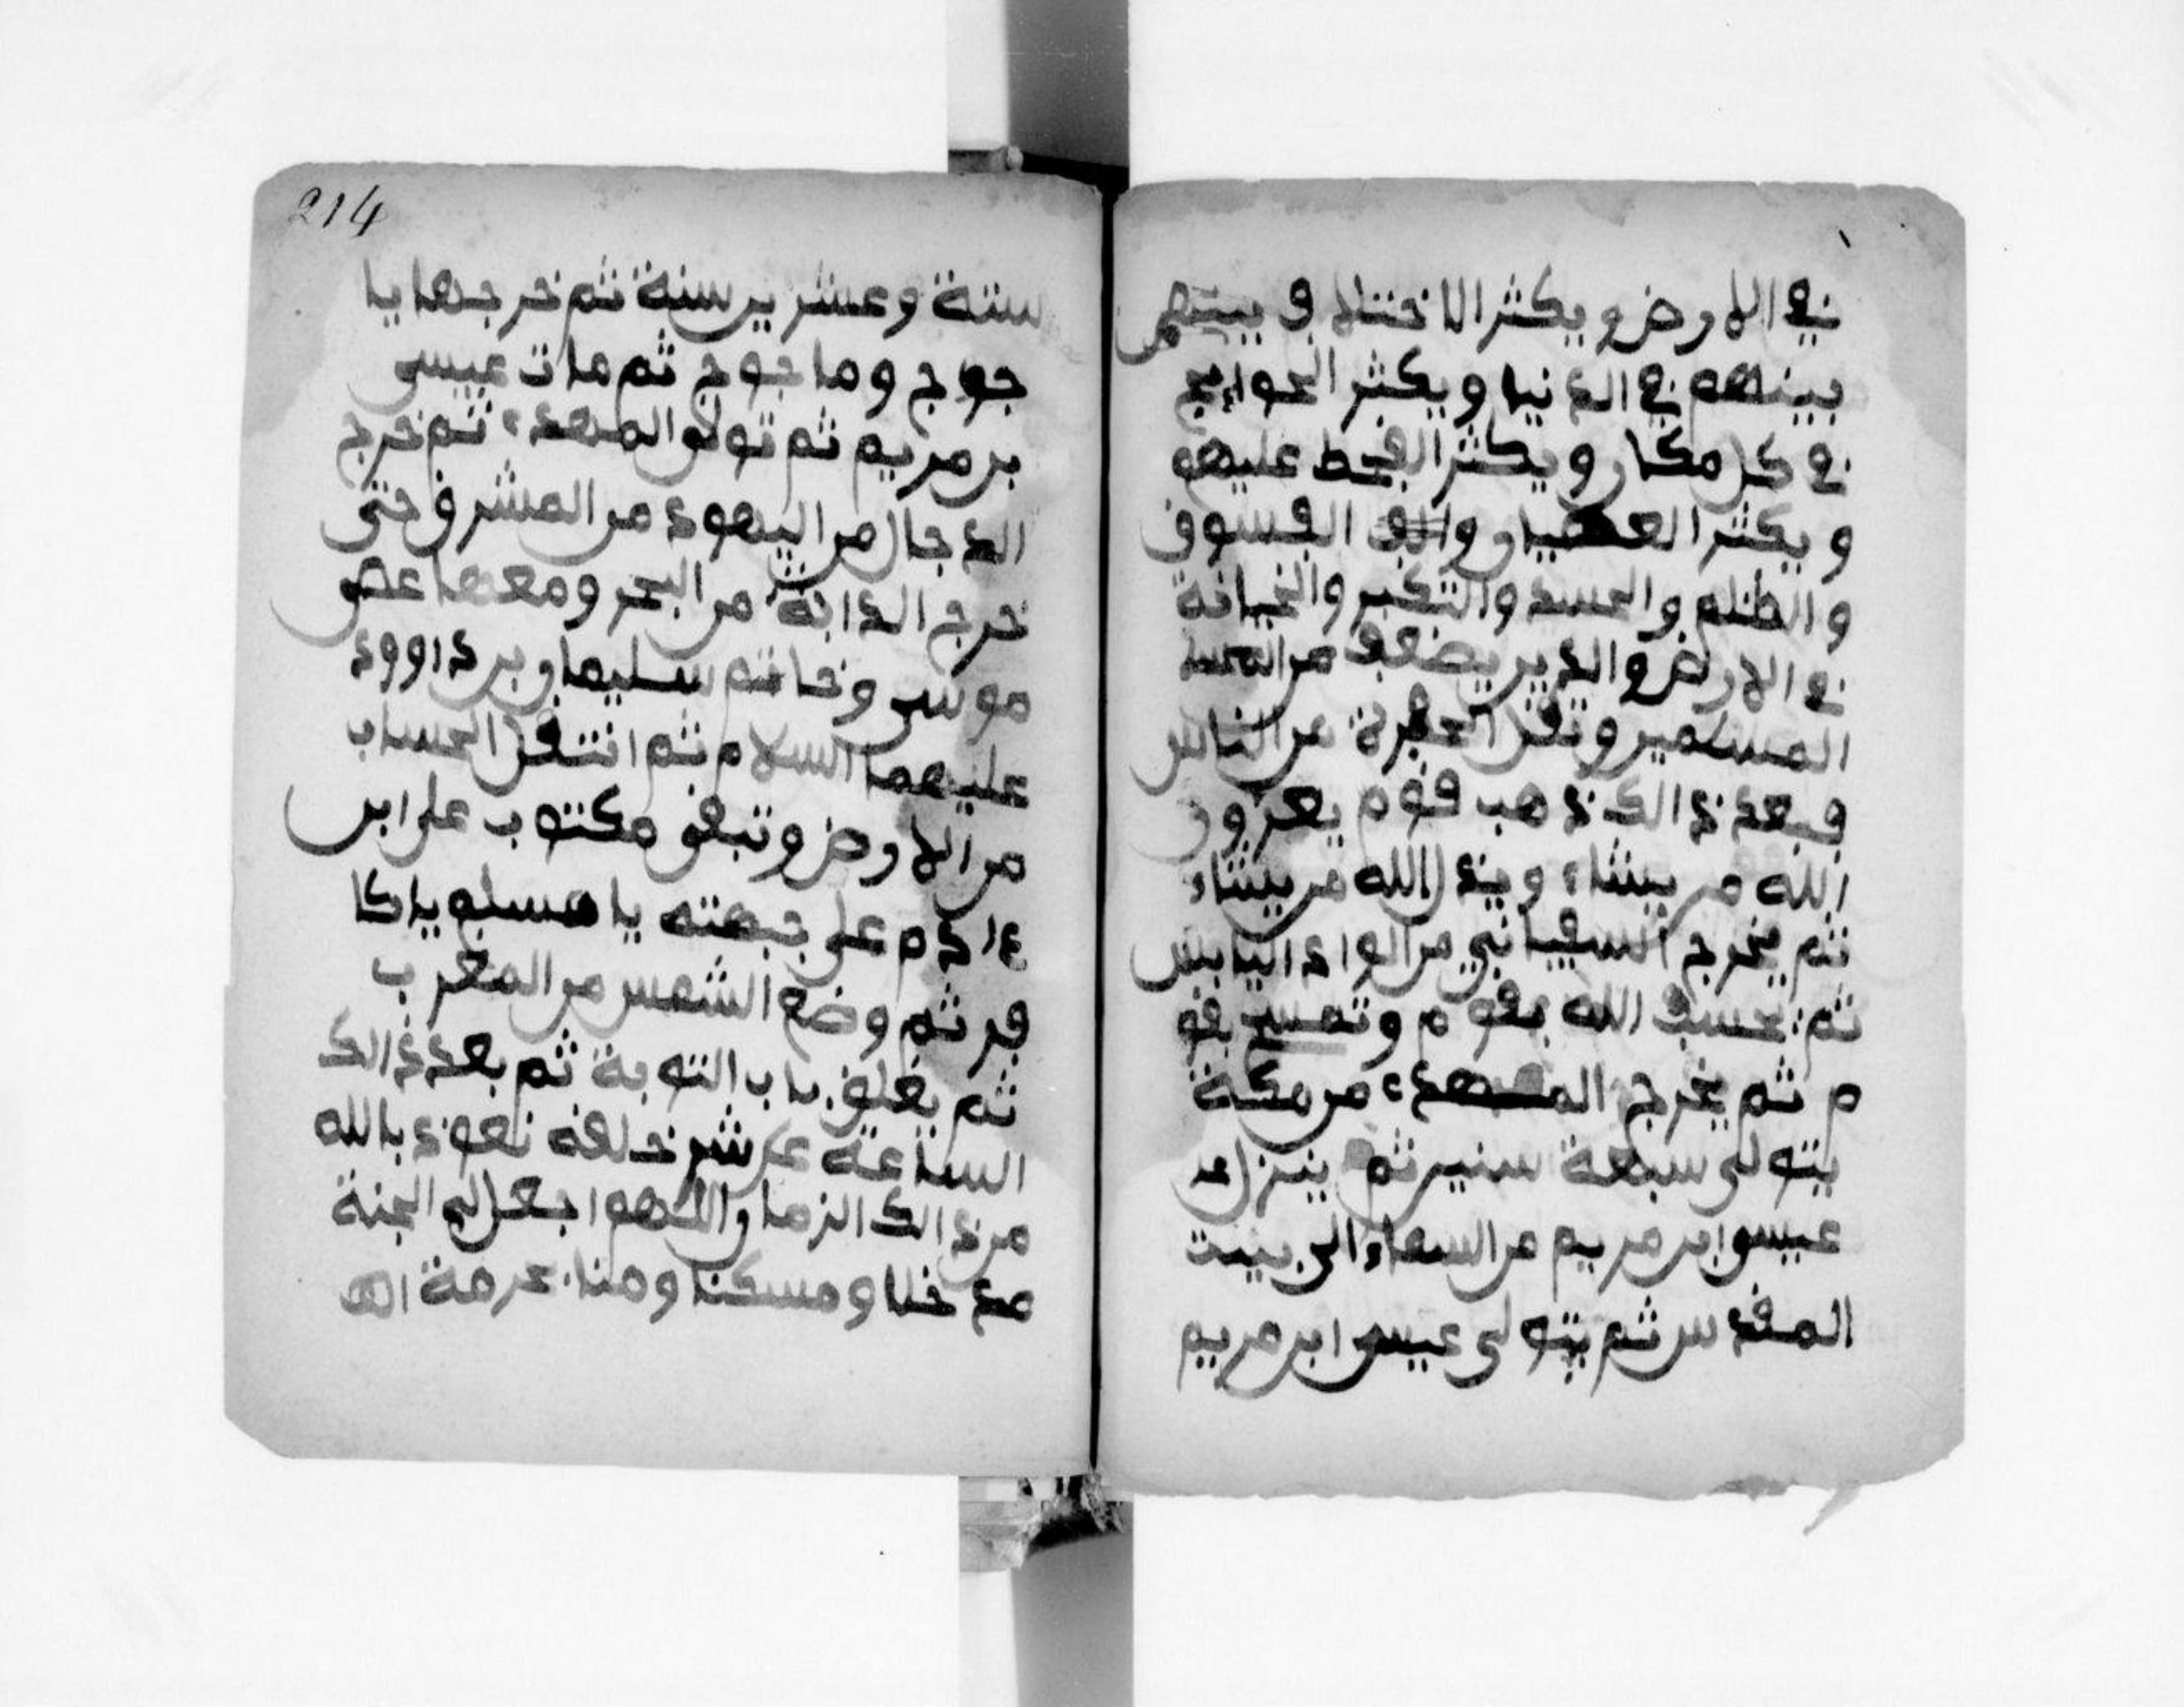 في الارض ويكثر الاختلاف بينهم
بينهم في الدنيا ويكثر الحوايج
في كل مكان ويكثر القحط عليهم
ويكثر العصيان والفسوق
والظلم والحسد والتكبر والخيانة
في الارض والدين يضعف من
المسلمين وتقل من الناس
فبعد ذالك ذهب قوم يعزون
الله من يشاء ويذل الله من يشاء
ثم يخرج السفياني من الواد اليابس
ثم يخسف الله بقوم وتمسخ بقو
م ثم يخرج المهدي من مكة
يتولى سبعة سنين ثم ينزل
عيسى ابن مريم من السماء الى بيت
المقدس ثم يتولى عيسى ابن مريم
214
ستة وعشرين سنة ثم خرجها يا
جوج وماجوج ثم مات عيسى
بن مريم ثم تولى المهدي ثم خرج
الدجال من اليهود من المشرق حتى
خرج الدابة من البحر ومعها عصى
موسى وخاتم سليمان بن داوود
عليهما السلام ثم انتقل الحساب
من الارض وتبقى مكتوب على ابن
ءادم على جبهته يا مسلم يا كا
فر ثم وضع الشمس من المغرب
ثم يغلق باب التوبة ثم بعد ذالك
الساعة على شر خلقه نعوذ بالله
من ذالك الزمان اللهم اجعل لي الجنة
مدخلنا ومسكنا ومنا بحرمة